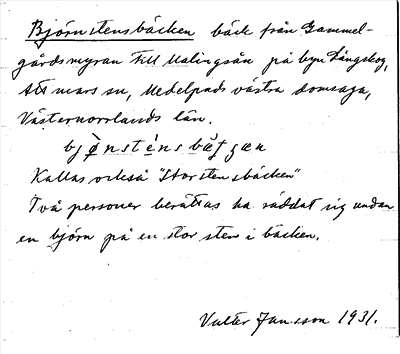 Björnstensbäcken bäck från Gammel-
gårdsmyran till Malingsån på byn Långskog,
Attmars sn, Medelpads västra domsaga,
Västernorrlands län.
Kallas också "Storstensbäcken"
Två personer berättas ha räddat sig undan
en björn på en stor sten i bäcken.
Valter Jansson 1931.